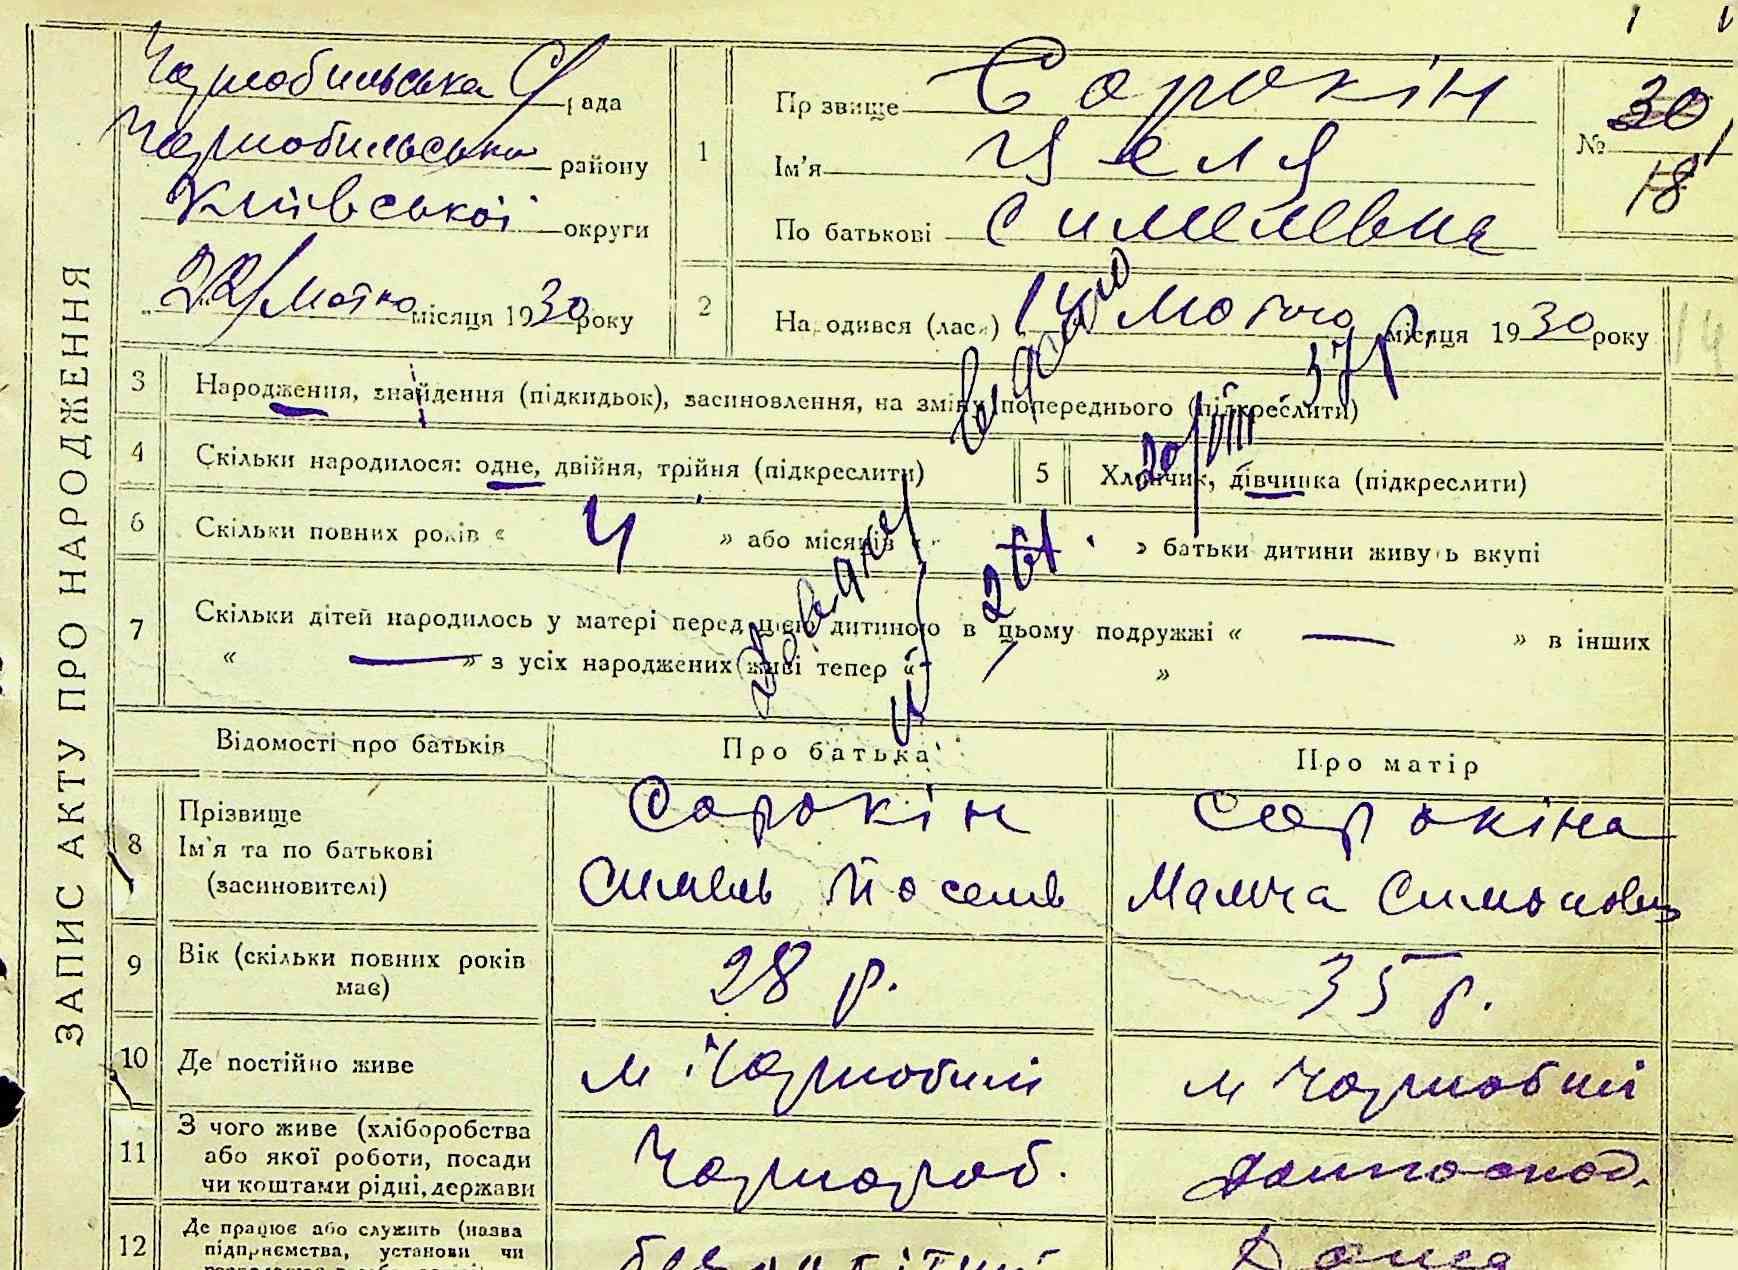 ЗАПИС АКТУ ПРО НАРОДЖЕННЯ
Чорнобильська С/рада
Чорнобильського району
Київської округи
"22/Лютого місяця 1930 року
1
Прізвище Сорокін
Ім'я Целя
По батькові Симелевна
№ 30
18
2
Народився (лась) 14 Лютого місяця 1930 року
14
3 Народження, знайдення (підкидьок), засиновлення, на зміну попереднього (підкреслити)
4 Скільки народилося: одне, двійня, трійня (підкреслити)
5 Хлопчик, дівчинка (підкреслити)
6 Скільки повних років « 4 » або місяців « » батьки дитини живуть вкупі
7 Скільки дітей народилось у матері перед цією дитиною в цьому подружжі « — » в інших
« — » з усіх народжених живі тепер « »
видано
20/VIII - 37 р.
Відомості про батьків
Про батька
Про матір
8 Прізвище
Ім'я та по батькові
(засиновителі)
Сорокін
Симель Йоселів
Сорокіна
Малича Симоновна
9 Вік (скільки повних років має)
28 р.
35 р.
10 Де постійно живе
м Чорнобилі
м Чорнобилі
11 З чого живе (хліборобства
або якої роботи, посади
чи коштами рідні, держави
Чорнороб.
домогосод.
12 Де працює або служить (назва
підприємства, установи чи
безробітний
Дома